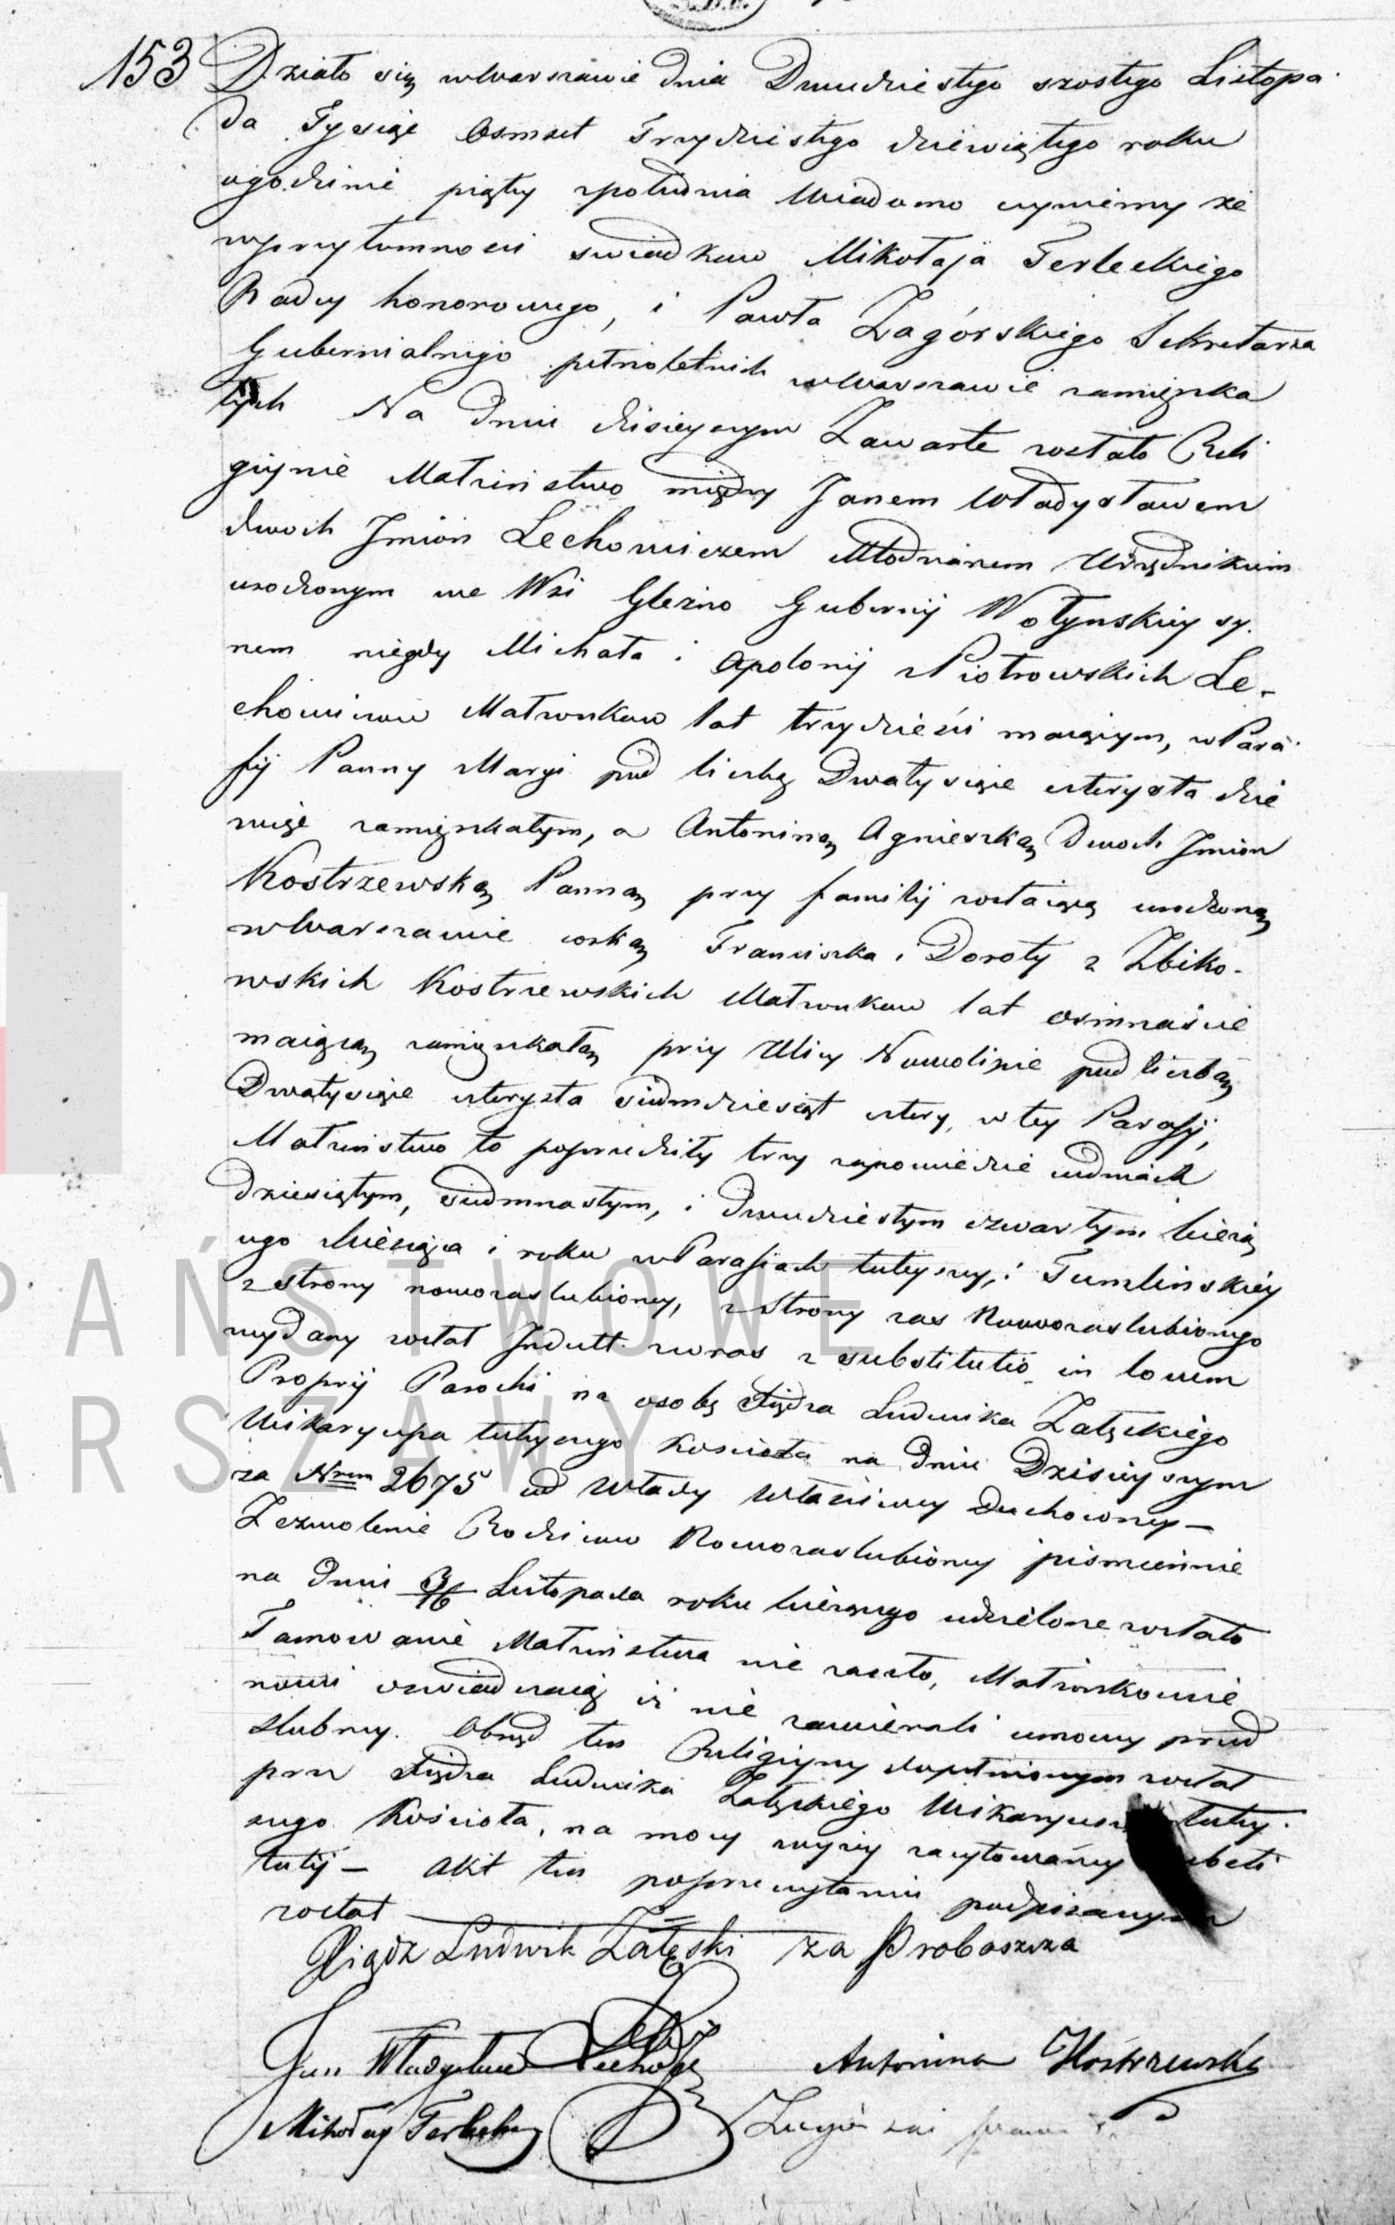 153 Działo się wWarszawie dnia Dwudziestego szostego Listopa
da Tysiąc Osmset Trzydziestego dziewiątego roku
ogodzinie piąty zpołudnia Wiadomo czyniemy że
wprzytomności swiadkow Mikołaja Terleckiego
Radcy honorowego, i Pawła Zagórskiego Sekretarza
Gubernialnego pełnoletnich wWarszawie zamięszka
łych Na dniu dzisieyszym Zawarte zostało Reli
giynie Małżeństwo między Janem Władysławem
dwoch Jmion Lechowiczem Młodzianem Urzędnikiem
urodzonym we Wsi Glezno Gubernij Wołynskiey sy-
nem niegdy Michała i Apolonij z Piotrowskich Le-
chowiczow Małżonkow lat trzydzieści maiącym, w Para
fij Panny Maryi pod liczbą Dwatysiące czterysta dzie
więć zamięszkałym, a Antoniną Agnieszką Dwoch Jmion
Kostrzewską Panną przy familij zostaiącą urodzoną
wWarszawie corką Franciszka i Doroty z Zbiko-
wskich Kostrzewskich Małżonkow lat osimnaście
maiącą zamięszkałą przy Ulicy Nowolipie pod liczbą
Dwatysiące czterysta siedmdziesiąt cztery, w tey Parafij,
Małżeństwo to poprzedziły trzy zapowiedzie wdniach
dziesiątym, siedmnastym, i dwudziestym czwartym bieżą
cego Miesiąca i roku wParafiach tuteyszey, i Tumlinskiey
z strony nowozaslubioney, z Strony zas Nowozaslubionego
wydany został Jndult wraz z substitutio in locum
Proprij Parochi na osobę Xiędza Ludwika Załęskiego
Wikaryusza tuteyszego Kościoła na dniu Dzisieyszym
za Nrem 2675 od Władzy Właściwey Duchowney —
Zezwolenie Rodzicow Nowozaslubioney piśmiennie
na dniu 3/16 Listopada roku bieżącego udzielone zostało
Tamowanie Małżeństwa nie zaszło, Małżonkowie
nowi oswiadczaią iż nie zawierali umowy przed
slubney. Obrzęd ten Religiyny dopełnionym został
przez Xiędza Ludwika Załęskiego Wikaryusza tutey
szego Kościoła, na mocy wyżey zacytowaney
Akt ten poprzeczytaniu podpisanym
został
Xiądz Ludwik Załęski za Proboszcza
Jan Władysław Lechowicz Antonina Kostrzewska
Mikołay Terlecki
PAŃSTWOWE
ARSZAWY